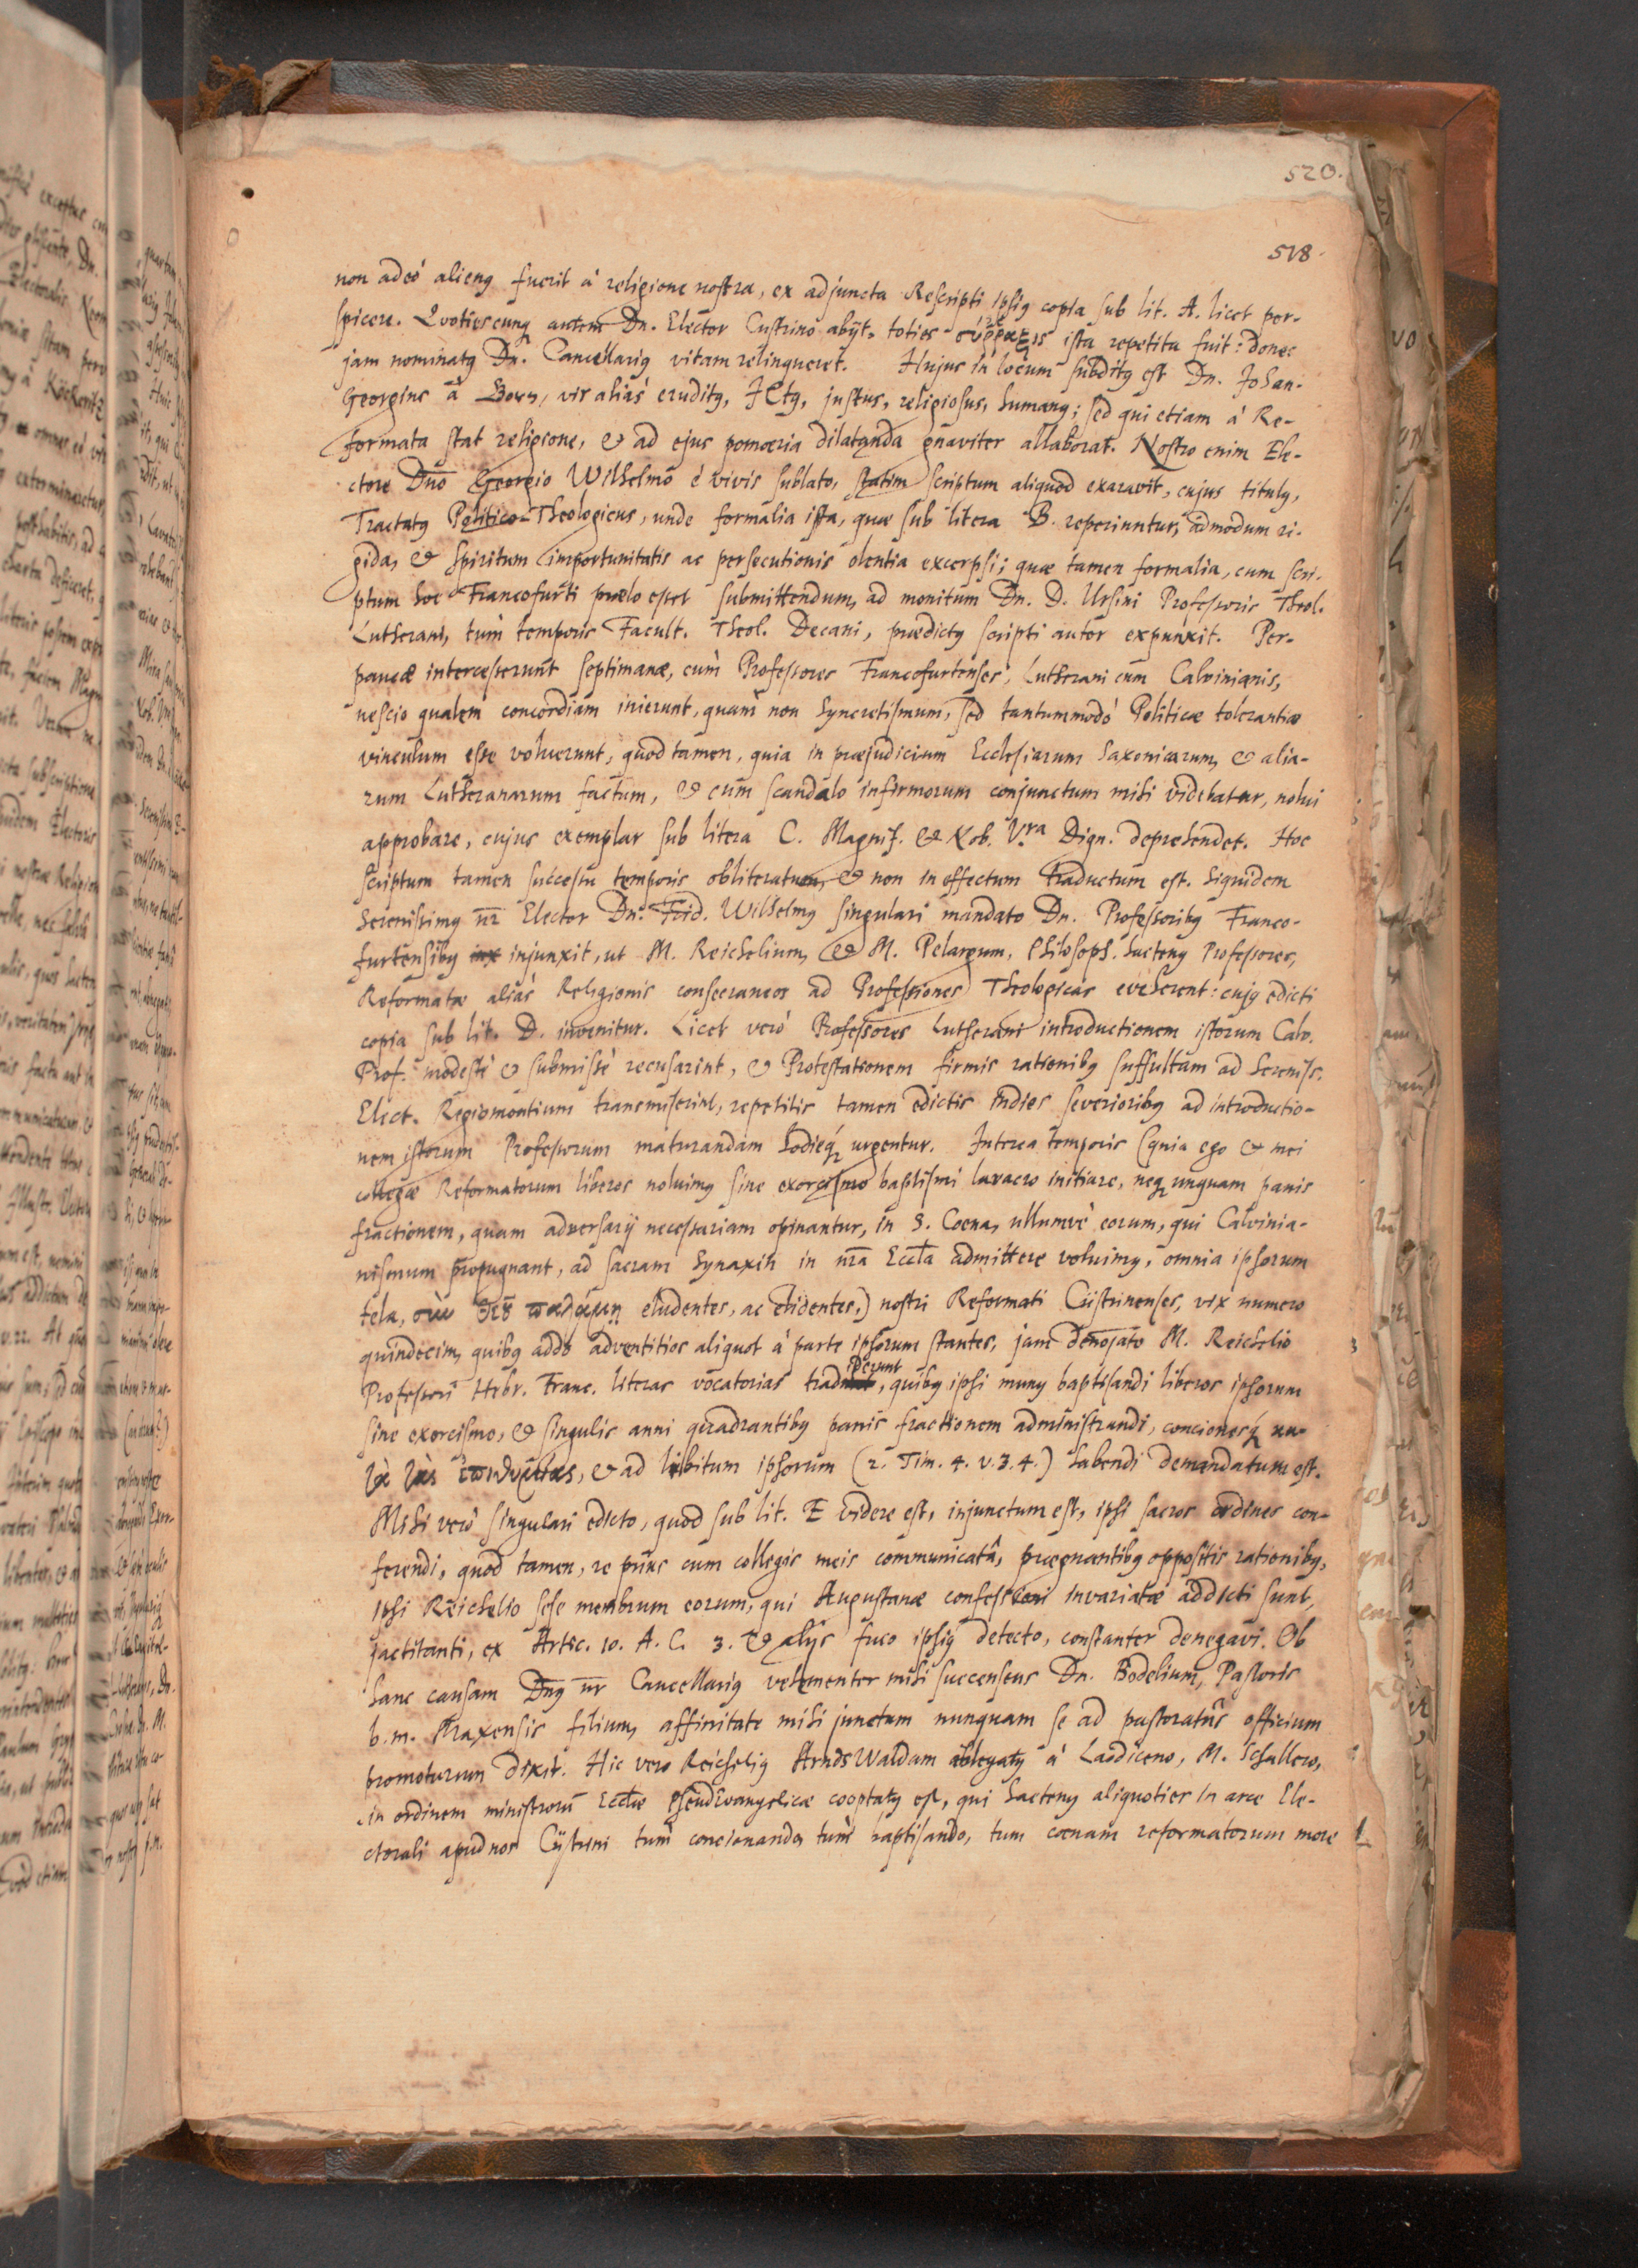 520.
518.
non adeò alienꝰ fuerit à religione nostra, ex adjuncta Rescripti ipsiꝰ copia sub lit. A. licet per-
spicere. Quotiescunqꝫ autem Dn. Elector Custrino abijt, toties ista repetita fuit: donec
jam nominatꝰ Dn. Cancellariꝰ vitam relinqueret. Hujus in locum subditꝰ est Dn. Johan-
Georgius à vir aliàs eruditꝰ, JCtꝰ, justus, religiosus, humanꝰ; sed qui etiam à Re-
formata stat religione, & ad ejus pomœria dilatanda gnaviter allaborat. Nostro enim Ele-
ctore Dn̄o Georgio Wilhelmo è vivis sublato, statim scriptum aliquod exaravit, cujus titulꝰ,
Tractatꝰ Politico-Theologicus, unde formalia ista, quæ sub litera B. reperiuntur, admodum ri-
gida, & spiritum importunitatis ac persecutionis olentia excerpsi; quæ tamen formalia, cum scri-
ptum hoc Francofurti prælo esset submittendum, ad monitum Dn. D. Ursini Professoris Theol.
Lutherani, tum temporis Facult. Theol. Decani, prædictꝰ scripti autor expunxit. Per-
paucæ intercesserunt septimanæ, cum Professores Francofurtenses, Lutherani cum Calvinianis,
nescio qualem concordiam inierunt, quam non Syncretismum, sed tantummodò Politicæ tolerantiæ
vinculum esse voluerunt, quod tamen, quia in præjudicium Ecclesiarum Saxonicarum, & alia-
rum Lutheranarum factum, & cum scandalo infirmorum conjunctum mihi videbatur, nolui
approbare, cujus exemplar sub litera C. Magnif. & Nob. Vra Dign. deprehendet. Hoc
scriptum tamen successu temporis obliteratum, & non in effectum traductum est. Siquidem
Serenissimꝰ nr̄ Elector Dn. Frid. Wilhelmꝰ singulari mandato Dn. Professoribꝰ Franco-
furtensibꝰ injunxit, ut M. Reichelium, & M. Pelargum, Philosoph. hactenꝰ Professores,
Reformatæ aliàs Religionis consecraneos ad Professiones Theologicas eveherent: cujꝰ edicti
copia sub lit. D. invenitur. Licet verò Professores Lutherani introductionem istorum Calv.
Prof. modestè & submissè recusarint, & Protestationem firmis rationibꝰ suffultam ad Sereniss.
Elect. Regiomontium transmiserint, repetitis tamen edictis indies severioribꝰ ad introductio-
nem istorum Professorum maturandam hodieqꝫ urgentur. Interea temporis (quia ego & mei
collegæ Reformatorum liberos noluimꝰ sine exorcismo baptismi lavacro initiare, neqꝫ unquam panis
fractionem, quam adversarij necessariam opinantur, in S. Coena, ullumvè eorum, qui Calvinia-
nismum propugnant, ad sacram Synaxin in nr̄a Eccl̄a admittere voluimꝰ, omnia ipsorum
tela, σὺν θεῷ παλάμῃ eludentes, ac elidentes,) nostri Reformati Cüstrinenses, vix numero
quindecim, quibꝰ addo adventitios aliquot à parte ipsorum stantes, jam M. Reichelio
Professori Hebr. Franc. literas vocatorias tradiderunt, quibꝰ ipsi munꝰ baptisandi liberos ipsorum
sine exorcismo, & singulis anni quadrantibꝰ panis fractionem administrandi, concionesqꝫ κα-
τὰ τὰς ἐπιθυμίας, & ad libitum ipsorum (2. Tim. 4. v. 3. 4.) habendi demandatum est.
Mihi verò singulari edicto, quod sub lit. E videre est, injunctum est, ipsi sacros ordines con-
ferendi, quod tamen, re prius cum collegis meis communicatâ, prægnantibꝰ oppositis rationibꝰ,
ipsi Reichelio sese membrum eorum, qui Augustanæ confessioni invariatæ addicti sunt,
jactitanti, ex Artic. 10. A. C. 3. & alijs fuco ipsiꝰ detecto, constanter denegavi. Ob
hanc causam Dn̄ꝰ nr̄ Cancellariꝰ vehementer mihi succensens Dn. Bodelium, Pastoris
b. m. filium, affinitate mihi junctum nunquam se ad pastoratûs officium
promoturum dixit. Hic vero Reicheliꝰ ArndsWaldam ablegatꝰ à Laodiceno, M. Schullero,
in ordinem ministrorū Eccl̄æ PseudEvangelicæ cooptatꝰ est, qui hactenꝰ aliquoties in arce Ele-
ctorali apud nos Cüstrini tum concionando, tum baptisando, tum coenam reformatorum more